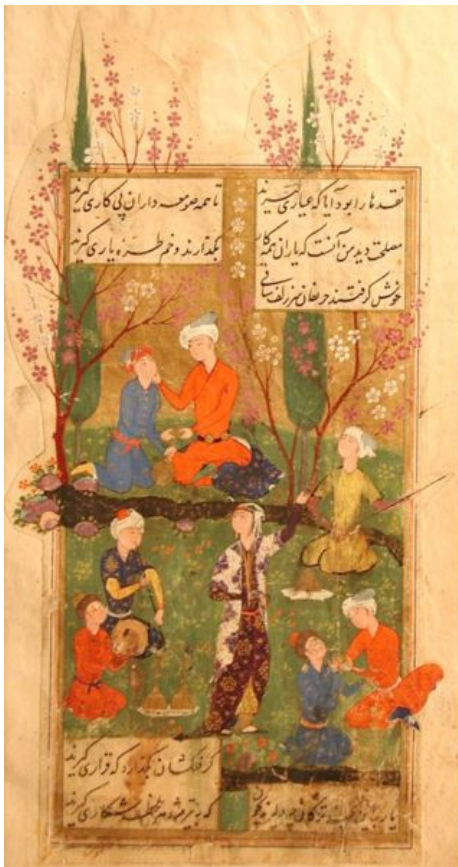 نقدها را بود آیا که عیاری گیرند
تا همه صومعه داران پی کاری گیرند
مصلحت دید من آنست که یاران همه کار
بگذارند و خم طره یاری گیرند
خوش گرفتند حریفان سر زلف ساقی
گر فلکشان بگذارد که قراری گیرند
یارب این ترکان چه دلیرند بخون
که به تیر مژه هر شکاری گیرند